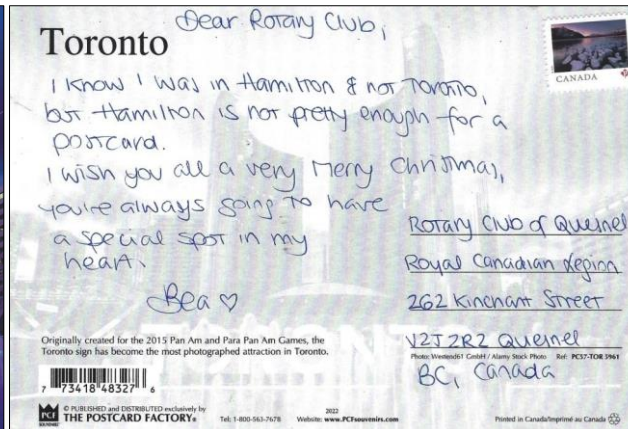 Toronto
Dear Rotary Club,
I know I was in Hamilton & not Toronto,
but Hamilton is not pretty enough for a
postcard.
I wish you all a very Merry Christmas,
you're always going to have
a special spot in my
heart.
Bea ♡
CANADA
Rotary Club of Quesnel
Royal Canadian Legion
262 Kinchant Street
V2J2R2 Quesnel
BC, Canada
Originally created for the 2015 Pan Am and Para Pan Am Games, the
Toronto sign has become the most photographed attraction in Toronto.
Photo: Westend61 GmbH / Alamy Stock Photo Ref: PC57-TOR 5961
7 73418 48327 6
PCF
SOUVENIRS
© PUBLISHED and DISTRIBUTED exclusively by
THE POSTCARD FACTORY®
Tel: 1-800-563-7678
2022
Website: www.PCFsouvenirs.com
Printed in Canada/Imprimé au Canada